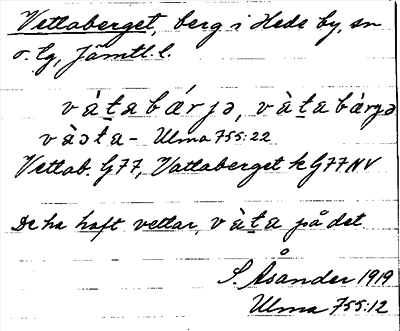 Vettaberget, berg i Hede by, sn
o. tg, Jämtl. l.
vàt̠abǽrjə, vàt̠abàrgə
vàəta- Ulma 755:22
Vettab. G77, Vattaberget k G77NV
De ha haft vettar, vàt̠a på det
S. Åsander 1919
Ulma 755:12